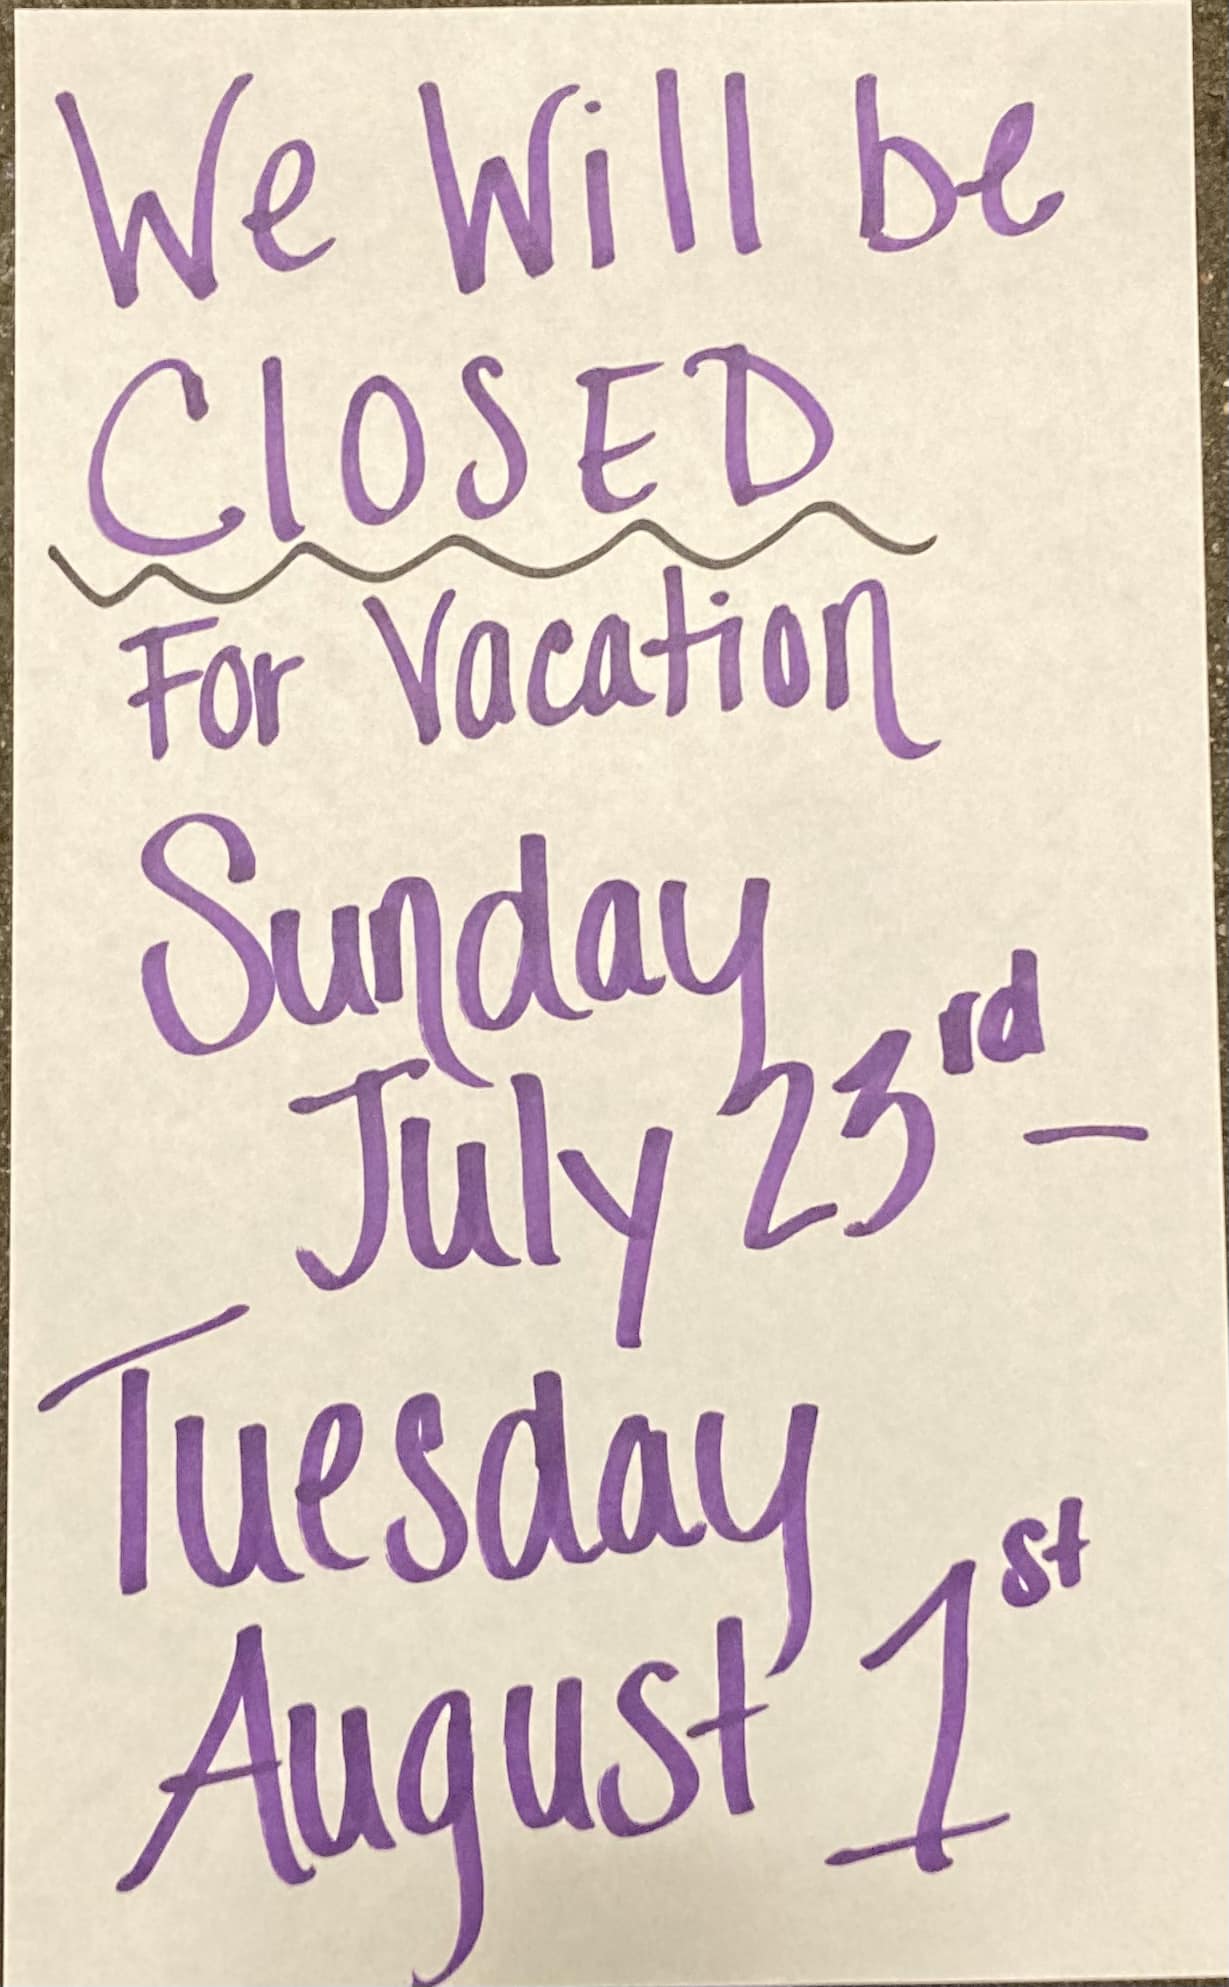 We Will be
ClOSED
For Vacation
Sunday
July 23rd –
Tuesday
August 1st